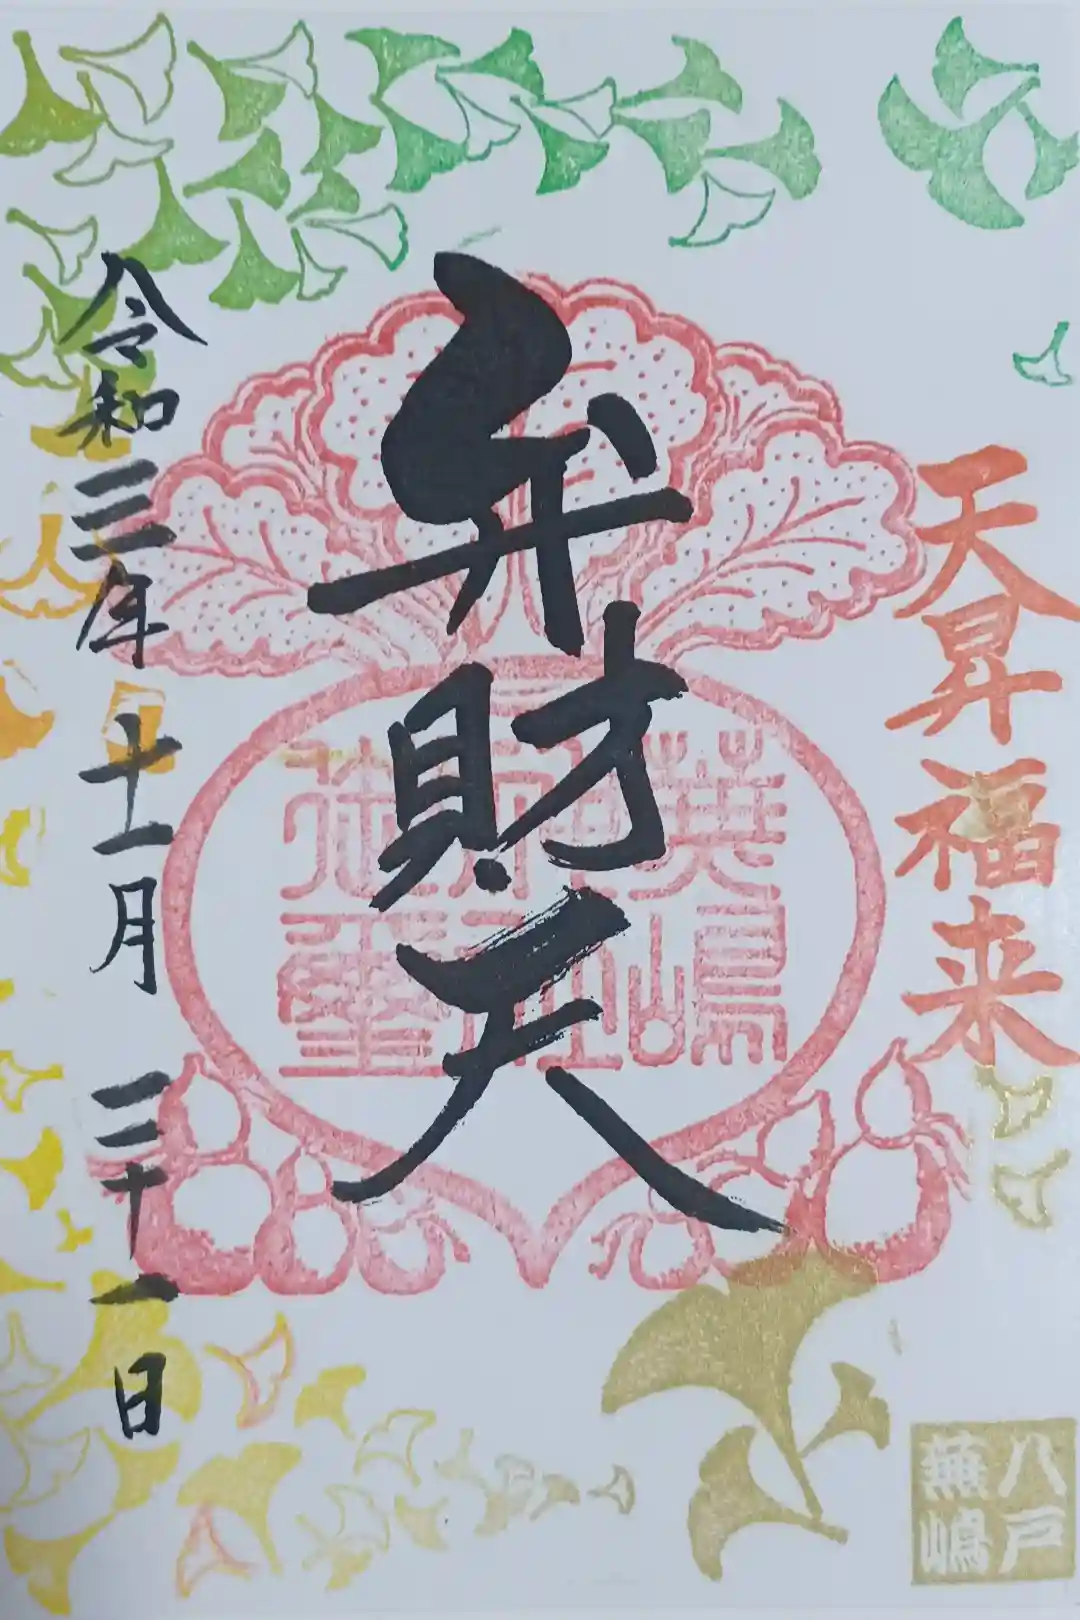 天昇福来
弁財天
蕪嶋神社御璽
令和三年十一月二十一日
八戸
蕪嶋